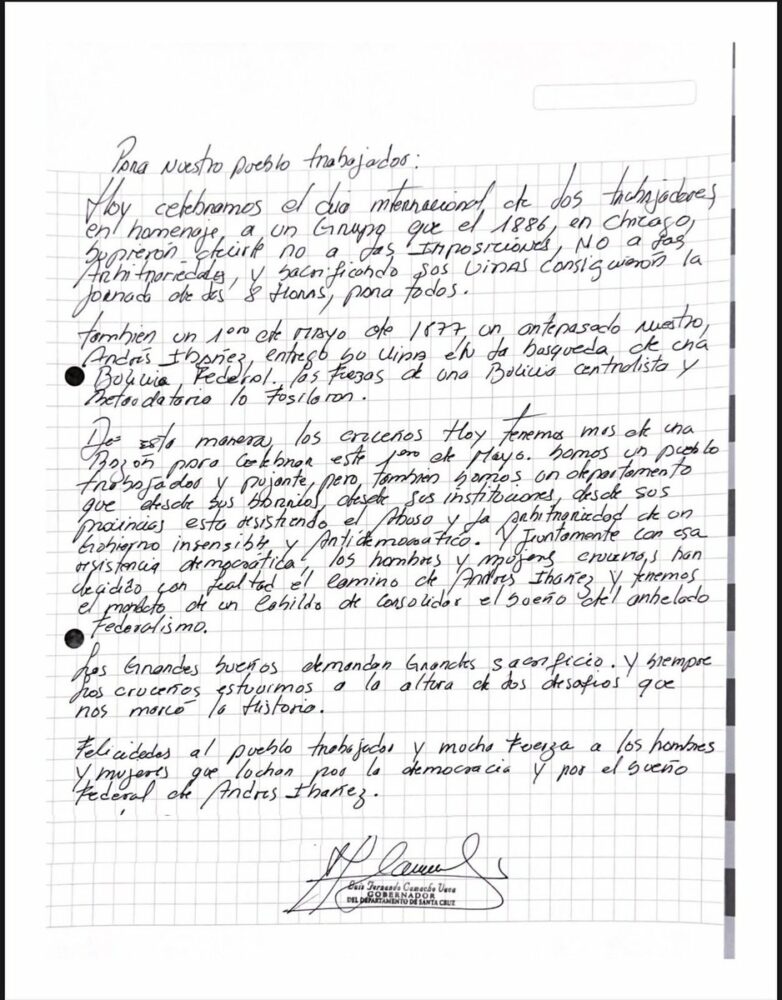 Para nuestro pueblo trabajador:
Hoy celebramos el dia internacional de los trabajadores
en homenaje, a un Grupo que el 1886, en Chicago,
supieron decirle no a las Imposiciones, NO a las
Arbitrariedades, y sacrificando sus vidas consiguieron la
jornada de las 8 Horas, para todos.
También un 1ero de Mayo de 1877 un antepasado nuestro,
Andrés Ibañez, entregó su vida en la busqueda de una
Bolivia Federal. las Fuezas de una Bolivia centralista y
Retrodataria lo Fosilaron.
De esta manera, los cruceños Hoy tenemos mas de una
Razón para celebrar este 1ero de Mayo. Somos un pueblo
trabajador y pujante, pero, tambien somos un departamento
que desde sus barrios, desde sus instituciones, desde sus
provincias esta resistiendo el Abuso y la Arbitrariedad de un
Gobierno insensible y Antidemocrático. Y Juntamente con esa
resistencia democrática, los hombres y mujeres cruceños, han
decidido con lealtad el camino de Andrés Ibañez y tenemos
el mandato de un Cabildo de consolidar el sueño del anhelado
Federalismo.
Los Grandes sueños demandan Grandes sacrificio. y siempre
los cruceños estuvimos a la altura de los desafíos que
nos marcó la Historia.
Felicidades al pueblo trabajador y mucha Fuerza a los hombres
y mujeres que luchan por la democracia y por el sueño
Federal de Andrés Ibañez.
Luis Fernando Camacho Vaca
GOBERNADOR
DEL DEPARTAMENTO DE SANTA CRUZ